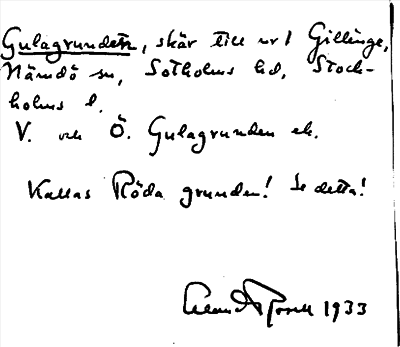 Gulagrunden, skär till nr 1 Gillinge,
Nämdö sn, Sotholms hd, Stock-
holms l.
V. och Ö. Gulagrunden ek.
Kallas Röda grunden! Se detta!
1933